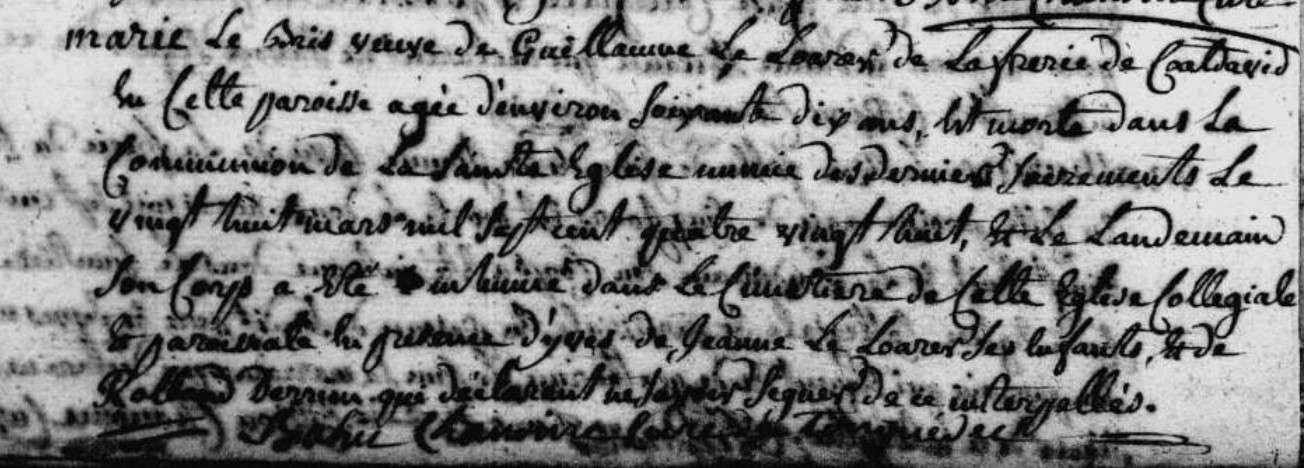 marie Le Bris veuve de Guillaume Le Loarer de La frerie de Coatdavid
En Cette paroisse agée d'environ soixante dix ans, Est morte dans La
Communion de La Sainte Eglise munie des derniers sacrements Le
vingt huit mars mil sept cent quatre vingt huit, & Le Landemain
Son Corps a Eté inhumé dans Le Cimetiere de Cette Eglise Collegiale
& paroissiale En presence d'yves de Jeanne Le Loarer ses Enfants, & de
Rolland Derrien qui declarent ne savoir signer de ce interpellés.
Chanoine